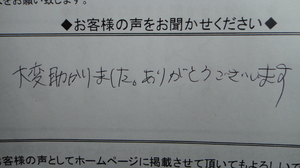 をお願い致します。
◆お客様の声をお聞かせください◆
大変助かりました。ありがとうございます
お客様の声としてホームページに掲載させて頂いてもよろしいで